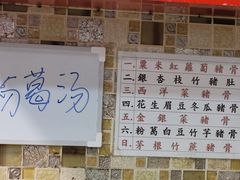 葛汤
一. 粟米紅蘿蔔豬骨
二. 銀杏枝竹豬肚
三. 西洋菜豬骨
四. 花生眉豆冬瓜豬骨
五. 金銀菜豬骨
六. 粉葛白豆竹芋豬骨
日. 茅根竹蔗豬骨